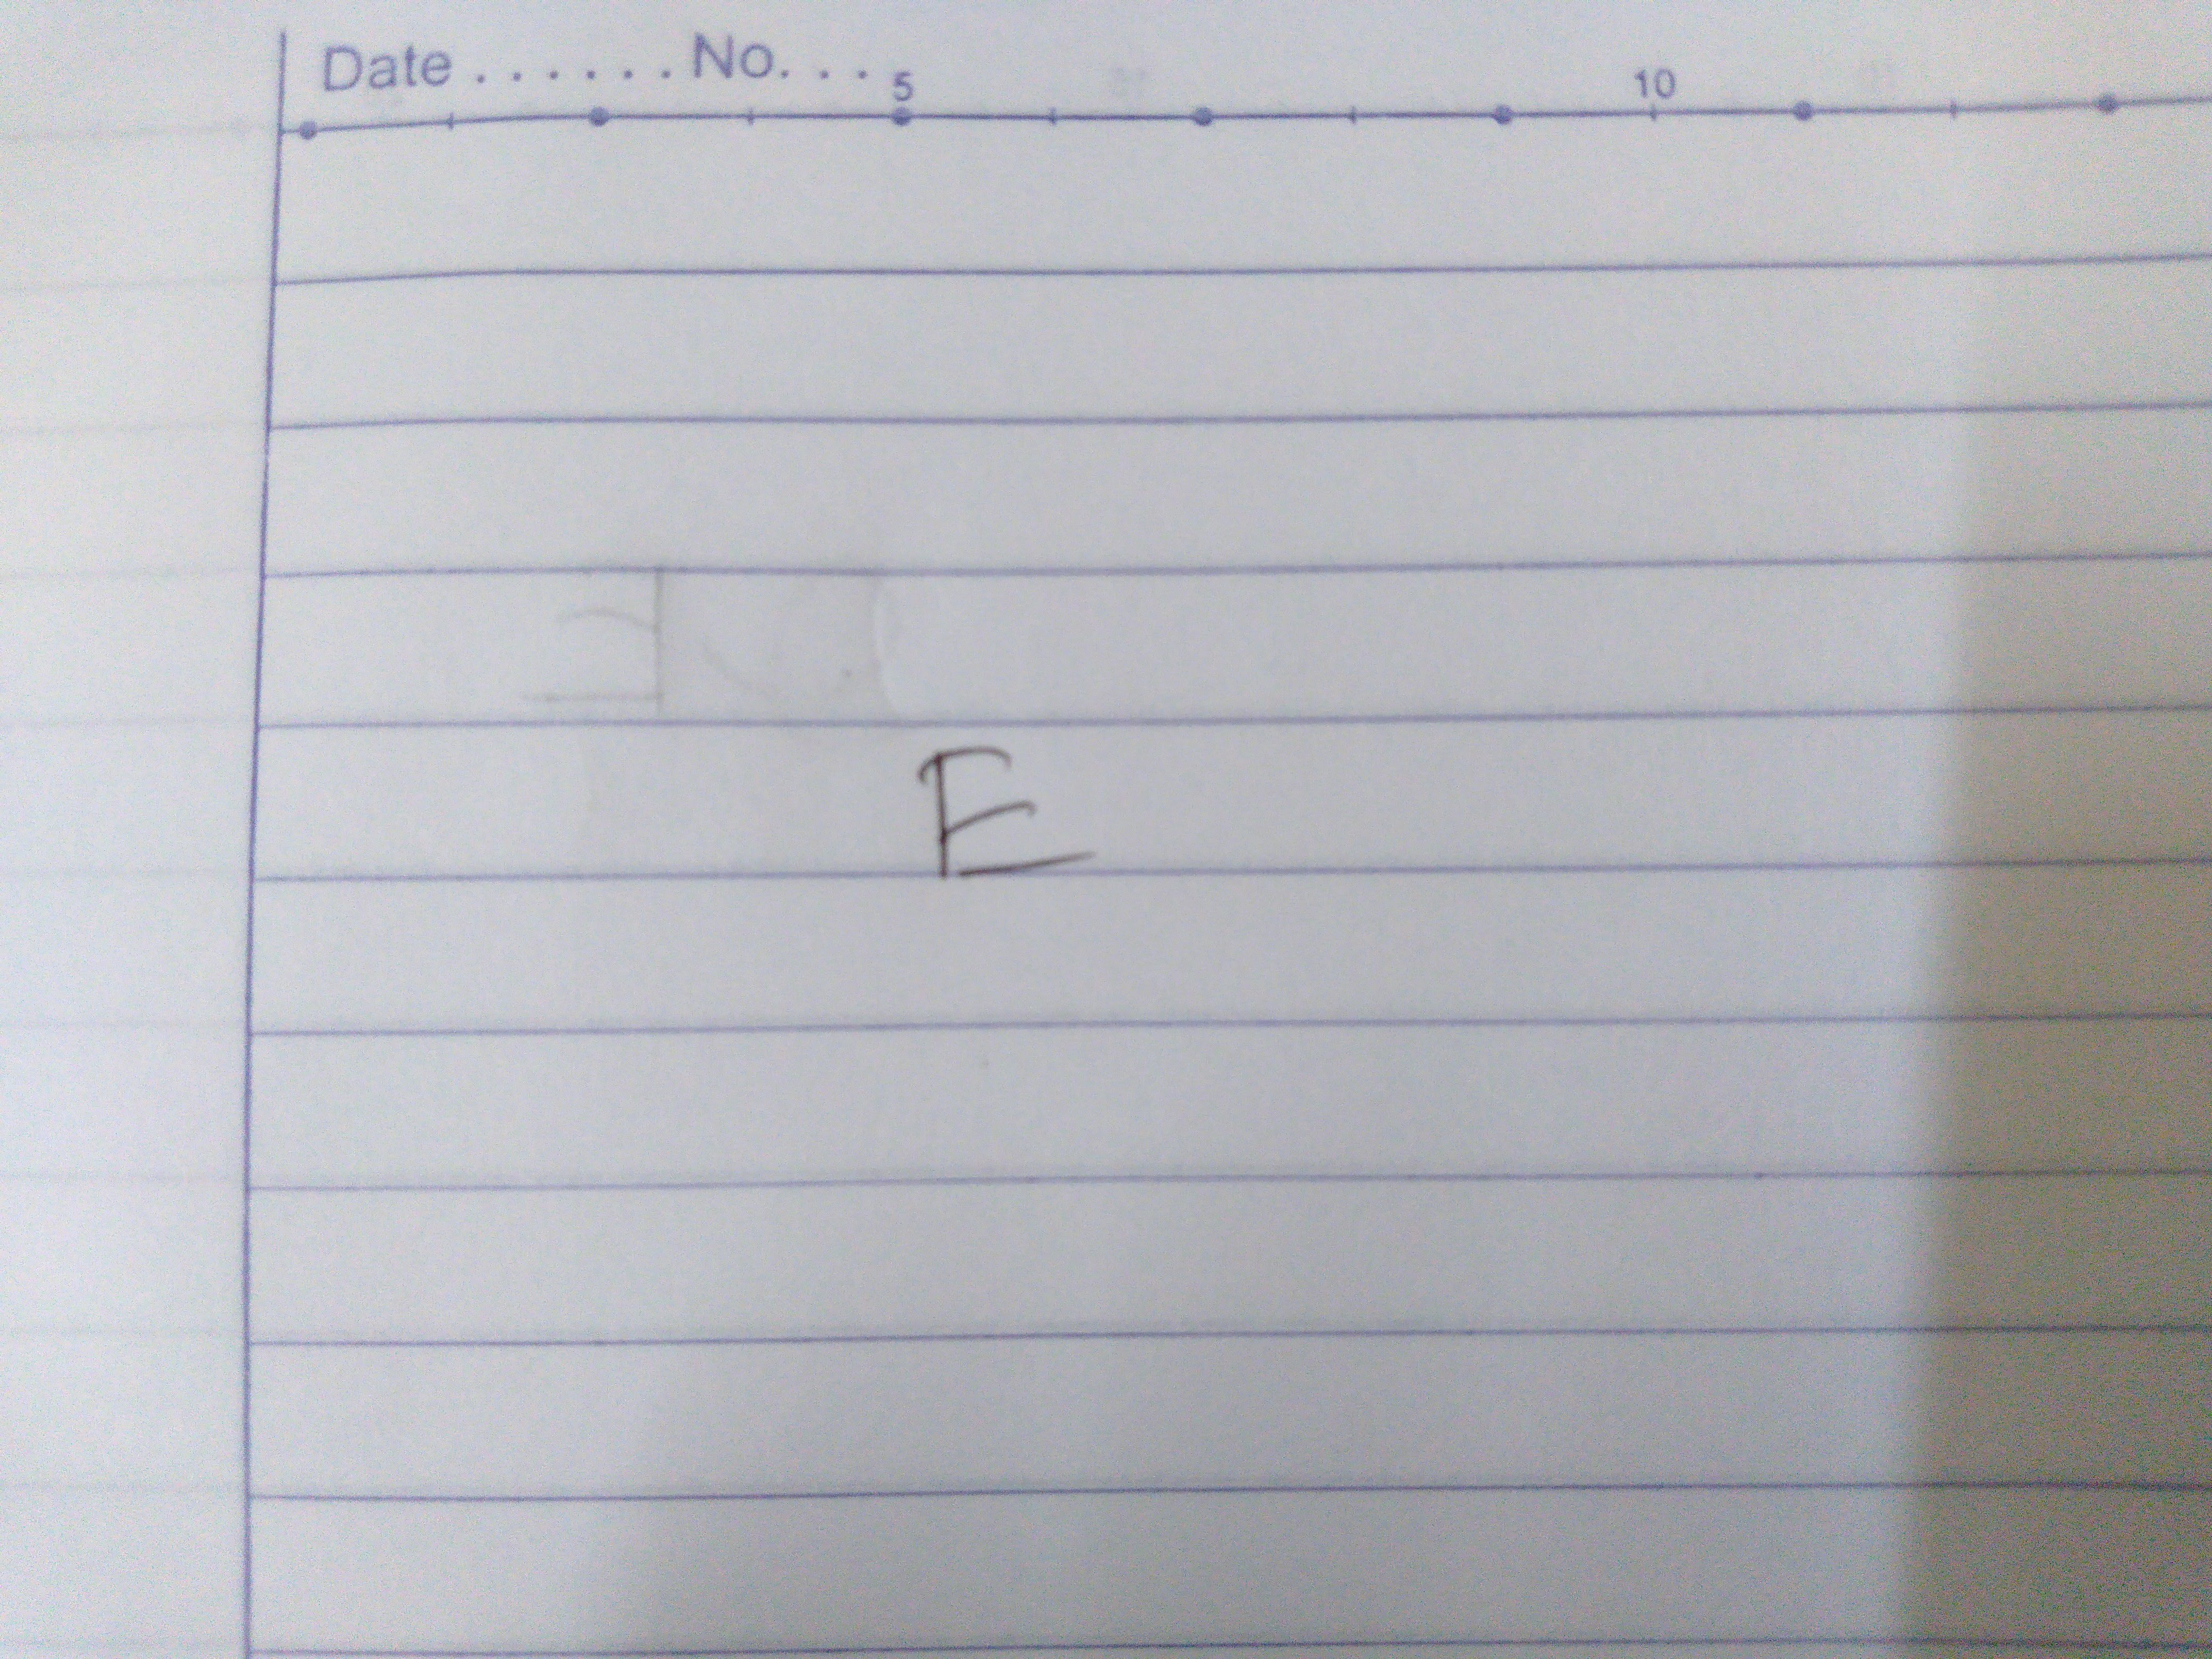 Date ...... No. ...
5 10
E